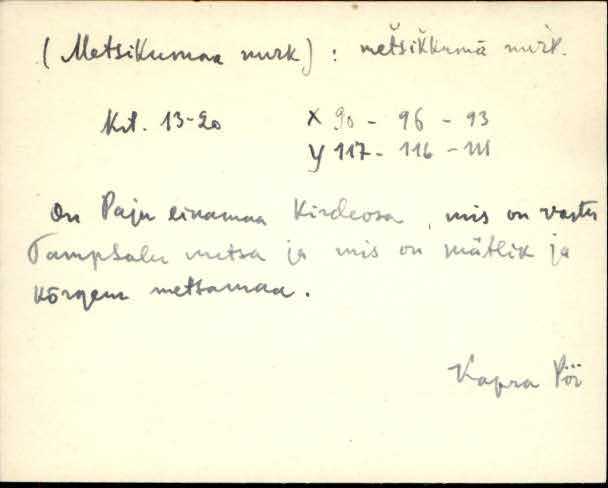 (Metsikumaa nurk) : metšikkumā nurk.
Krt. 13-20 X 90 - 96 - 93
Y 117 - 116 - 111
On Paju einamaa Kirdeosa, mis on vastu
Tampsalu metsa ja mis on mätlik ja
kõrgem metsamaa.
Kapra Pör